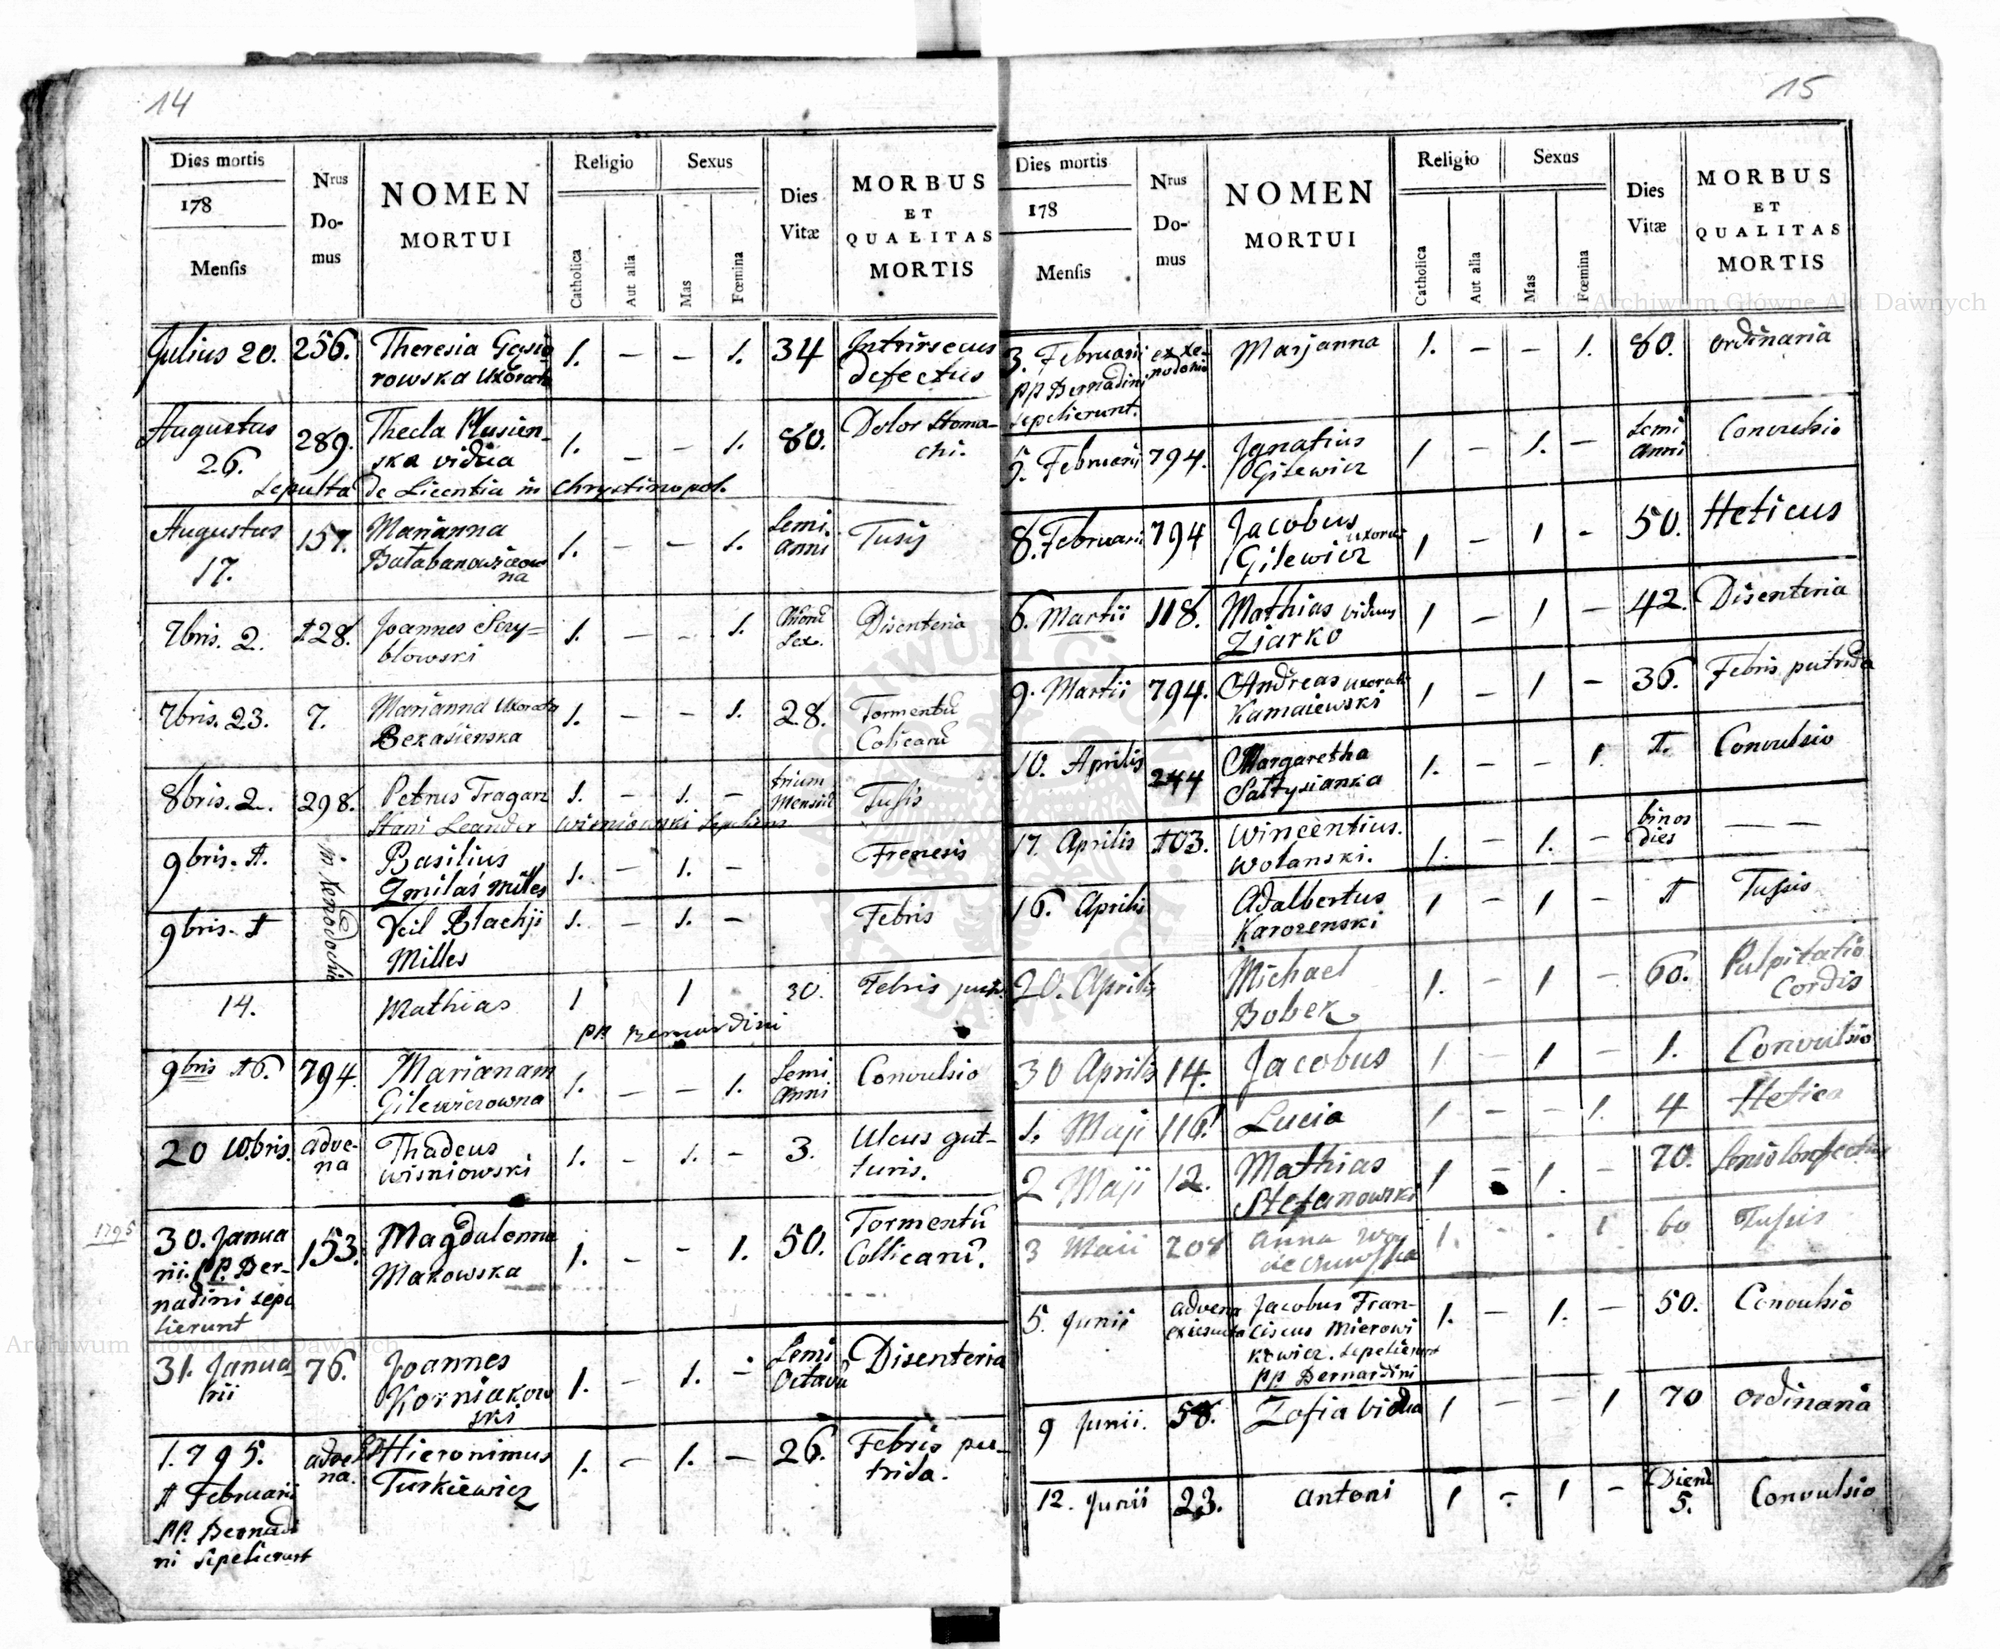 14
Dies mortis
178
Mensis
Nrus
Do-
mus
NOMEN
MORTUI
Religio
Catholica
Aut alia
Sexus
Mas
Fœmina
Dies
Vitæ
MORBUS
ET
QUALITAS
MORTIS
Julius 20. 256. Theresia Gąsio 1. — — 1. 34 Intrirsecus
rowska Uxorata defectus
Augustus 289. Thecla Plusien- 1. — — 1. 80. Dolor Stoma-
26. ska vidua chi.
Sepulta de Licentia in Chrystinopol.
Augustus 157. Marianna 1. — — 1. Semi Tusis
17. Bałabanowiczow anni
na
7bris. 2. 128. Joannes Scry= 1. — — 1. Sex. Disenteria
błowski
7bris. 23. 7. Marianna Uxorata 1. — — 1. 28. Tormentū
Bekasienska Colicarū
8bris. 2. 298. Petrus Tragarz 1. — 1. — trium Tusis
Stani Leander Wisniowski Sepeliens Mensiū
9bris. 1. in Xenodochio Basilius 1. — 1. — Frenesis
Gmilas milles
9bris. 1 Blachij 1. — 1. — Febris
Milles
14. Mathias 1 1 30. Febris
PP. Bernardini
9bris 16. 794. Marianam 1. — — 1. Semi Convulsio
Gilewiczowna anni
20 10bris. adve- Thadeus 1. — 1. — 3. Ulcus gut-
na Wisniowski turis.
1795
30. Janua 153. Magdalenna 1. — — 1. 50. Tormentū
rii. PP. Ber- Makowska Collicarū.
nadini sepe
lierunt
31. Janua 76. Joannes 1. — 1. — Semi Disenteria
rii Korniakow Octavū
ski
1795. adve Hieronimus 1. — 1. — 26. Febris pu-
1 Februarii na. Turkiewicz trida.
PP. Bernadi
ni Sepelierunt
15
Dies mortis
178
Mensis
Nrus
Do-
mus
NOMEN
MORTUI
Religio
Catholica
Aut alia
Sexus
Mas
Fœmina
Dies
Vitæ
MORBUS
ET
QUALITAS
MORTIS
3. Februarii ex xe- Marjanna 1. — — 1. 80. ordinaria
PP Bernadini nodohio
Sepelierunt.
5. Februarii 794. Ignatius 1 — 1. — Semi Convulsio
Gilewicz anni
8. Februarii 794 Jacobus 1 — 1 — 50. Heticus
Gilewicz
6. Martii 118. Mathias viduus 1 — 1 — 42. Disenteria
Ziarko
9. Martii 794. Andreas 1 — 1 — 36. Febris putrida
Kamaiewski
10. Aprilis 244 Margaretha 1. — — 1. 1. Convulsio
Sałtysianka
17. Aprilis 103. Wincentius. 1. — 1. — binos — —
Wolanski. dies
16. Aprilis Adalbertus 1 — 1 — 1 Tusis
Karozenski
20. Aprilis Michael 1. — 1 — 60. Palpitatio
Bobek Cordis
30 Aprilis 14. Jacobus 1 — 1 — 1. Convulsio
1. Maji 116. Lucia 1 — — 1. 4 Hetica
2 Maji 12. Mathias 1 — 1. — 70. Senio Confectus
Stefanowski
3 Maii 204 Anna 1. - - 1 60 Tusis
5. Junii advena Jacobus Fran- 1. — 1. — 50. Convulsio
ciscus Mierowi
kowicz. Sepelierunt
PP. Bernardini
9 Junii. 58. Zofia vidua 1 — — 1 70 ordinaria
12. Junii 23. Antoni 1 - 1 — Dierū Convulsio
5.
Archiwum Główne Akt Dawnych
Archiwum Główne Akt Dawnych
ARCHIWUM GŁÓWNE AKT DAWNYCH